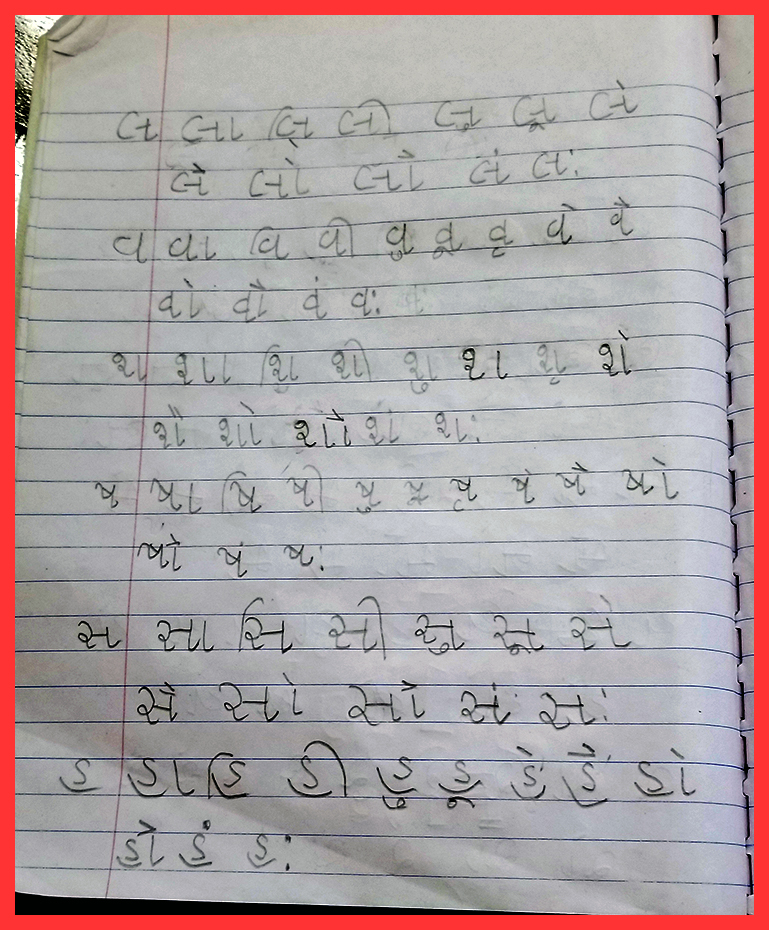 લ લા લિ લી લુ લૂ લે
લૈ લો લૌ લં લઃ
વ વા વિ વી વુ વૂ વૃ વે વૈ
વો વૌ વં વઃ
શ શા શિ શી શુ શા શૃ શે
શૈ શો શૌ શં શઃ
ષ ષા ષિ ષી ષુ ષૃ ષે ષૈ ષો
ષૌ ષં ષઃ
સ સા સિ સી સુ સૂ સે
સૈ સો સૌ સં સઃ
હ હા હિ હી હુ હૂ હે હૈ હો
હૌ હં હઃ